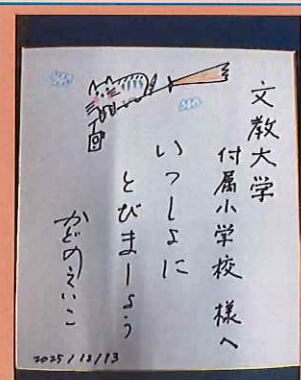 文教大学
付属小学校 様へ
いっしょに
とびましょう
かどのえいこ
2025/12/13